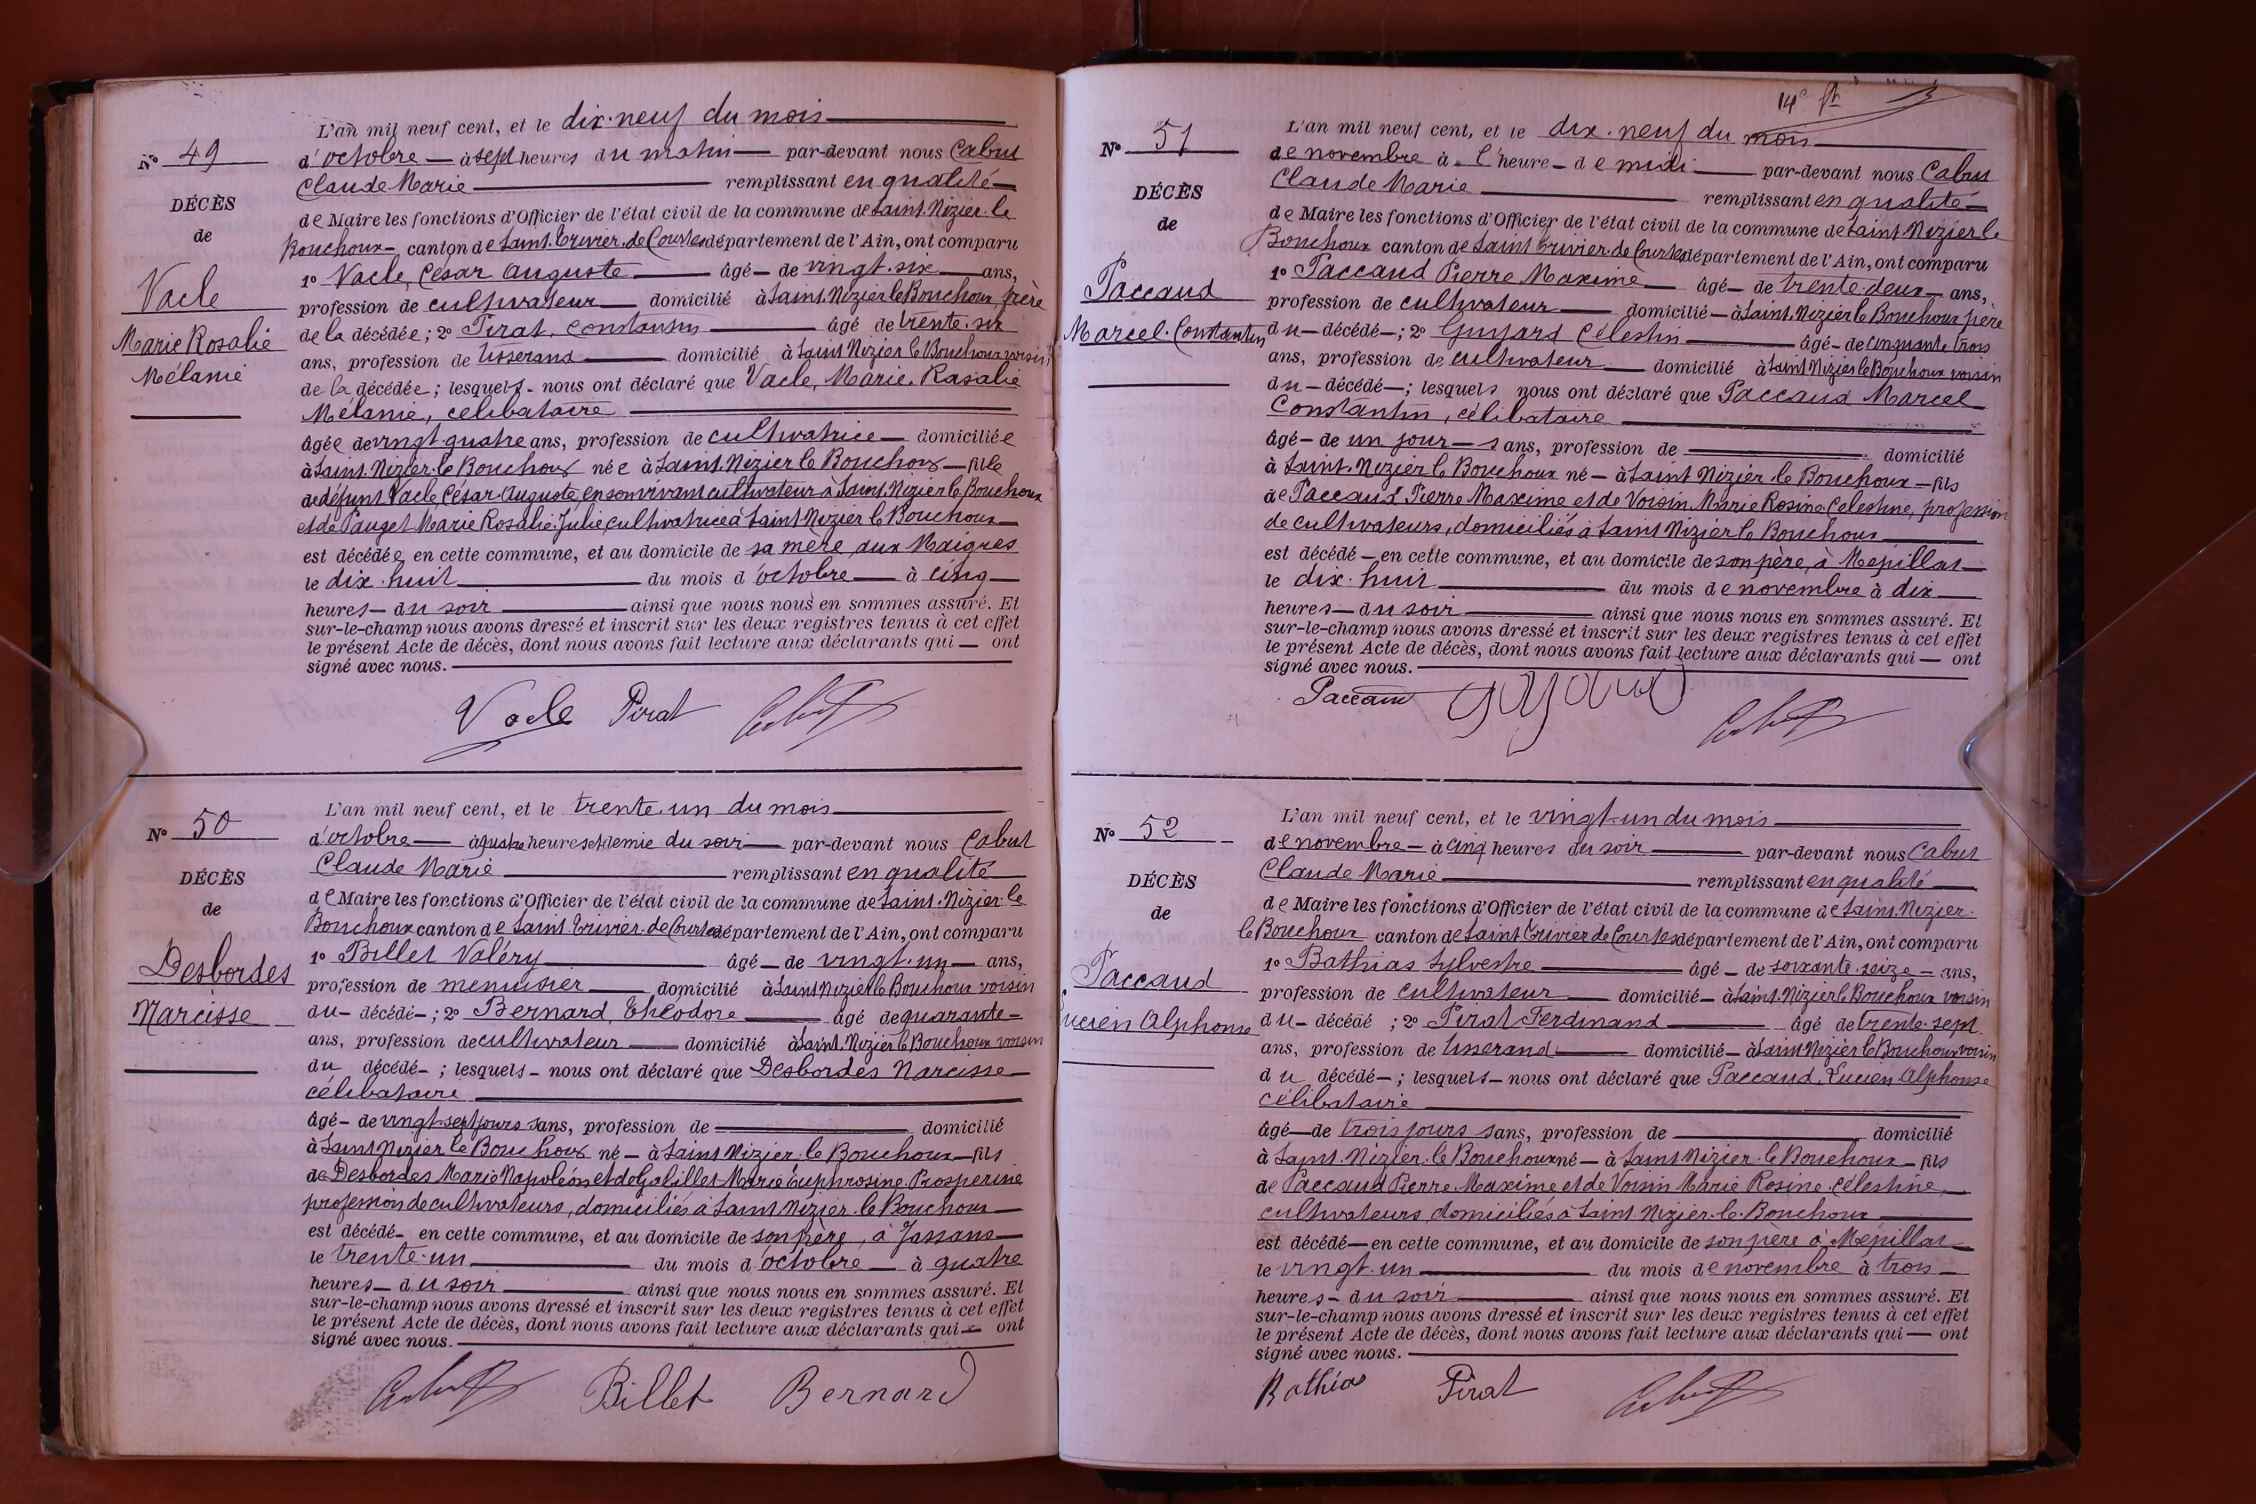 L'an mil neuf cent, et le dix-neuf du mois
N° 49
d'octobre — à sept heures du matin — par-devant nous Cabut
Claude Marie — remplissant en qualité
DÉCÈS
de Maire les fonctions d'Officier de l'état civil de la commune de Saint-Nizier-le
de
Bouchoux — canton de Saint-Trivier-de-Courtes département de l'Ain, ont comparu
1° Vacle, César Auguste — âgé — de vingt-six — ans,
Vacle
profession de cultivateur — domicilié à Saint-Nizier le Bouchoux frère
Marie Rosalie
de la décédée ; 2° Pirat, Constantin — âgé de trente-six
Mélanie
ans, profession de tisserand — domicilié à Saint Nizier le Bouchoux voisin
de la décédée ; lesquels - nous ont déclaré que Vacle, Marie, Rosalie
Mélanie, célibataire
âgée de vingt-quatre ans, profession de cultivatrice — domiciliée
à Saint-Nizier-le Bouchoux née à Saint-Nizier le Bouchoux — fille
de défunt Vacle, César-Auguste, en son vivant cultivateur à Saint-Nizier le Bouchoux
et de Pauget Marie Rosalie Julie, cultivatrice à Saint Nizier le Bouchoux
est décédée en cette commune, et au domicile de sa mère aux Maigres
le dix-huit — du mois d'octobre — à cinq
heures — du soir — ainsi que nous nous en sommes assuré. Et
sur-le-champ nous avons dressé et inscrit sur les deux registres tenus à cet effet
le présent Acte de décès, dont nous avons fait lecture aux déclarants qui — ont
signé avec nous.
Vacle Pirat Cabut
L'an mil neuf cent, et le trente-un du mois
N° 50
d'octobre — à quatre heures et demie du soir — par-devant nous Cabut
Claude Marie — remplissant en qualité
DÉCÈS
de Maire les fonctions d'Officier de l'état civil de la commune de Saint-Nizier-le
de
Bouchoux canton de Saint-Trivier-de-Courtes département de l'Ain, ont comparu
1° Billet Valéry — âgé — de vingt-un — ans,
Desbordes
profession de menuisier — domicilié à Saint Nizier le Bouchoux voisin
Narcisse
du - décédé - ; 2° Bernard, Théodore — âgé de quarante -
ans, profession de cultivateur — domicilié à Saint-Nizier le Bouchoux voisin
du décédé - ; lesquels - nous ont déclaré que Desbordes Narcisse
célibataire
âgé - de vingt-sept jours sans, profession de — domicilié
à Saint Nizier le Bouchoux né - à Saint Nizier-le Bouchoux — fils
de Desbordes Marie Napoléon et de Gabillet Marie Euphrosine Prosperine
profession de cultivateurs, domiciliés à Saint Nizier-le Bouchoux
est décédé - en cette commune, et au domicile de son père, à Jassans
le trente-un — du mois d'octobre — à quatre
heures — du soir — ainsi que nous nous en sommes assuré. Et
sur-le-champ nous avons dressé et inscrit sur les deux registres tenus à cet effet
le présent Acte de décès, dont nous avons fait lecture aux déclarants qui — ont
signé avec nous.
Cabut Billet Bernard
14e
L'an mil neuf cent, et le dix-neuf du mois
N° 51
de novembre à - l'heure - de midi — par-devant nous Cabut
Claude Marie — remplissant en qualité
DÉCÈS
de Maire les fonctions d'Officier de l'état civil de la commune de Saint Nizier le
de
Bouchoux canton de Saint Trivier-de-Courtes département de l'Ain, ont comparu
1° Paccaud Pierre Maxime — âgé — de trente-deux — ans,
Paccaud
profession de cultivateur — domicilié — à Saint-Nizier le Bouchoux père
Marcel-Constantin
du — décédé — ; 2° Guyard Célestin — âgé — de cinquante trois
ans, profession de cultivateur — domicilié à Saint Nizier le Bouchoux voisin
du — décédé — ; lesquels nous ont déclaré que Paccaud Marcel
Constantin, célibataire
âgé — de un jour — sans, profession de — domicilié
à Saint-Nizier le Bouchoux né — à Saint Nizier-le Bouchoux — fils
de Paccaud Pierre Maxime et de Voisin Marie Rosine Célestine, profession
de cultivateurs, domiciliés à Saint Nizier le Bouchoux
est décédé — en cette commune, et au domicile de son père, à Mépillat
le dix-huit — du mois de novembre à dix
heures — du soir — ainsi que nous nous en sommes assuré. Et
sur-le-champ nous avons dressé et inscrit sur les deux registres tenus à cet effet
le présent Acte de décès, dont nous avons fait lecture aux déclarants qui — ont
signé avec nous.
Paccaud Guyard Cabut
L'an mil neuf cent, et le vingt-un du mois
N° 52
de novembre — à cinq heures du soir — par-devant nous Cabut
Claude Marie — remplissant en qualité
DÉCÈS
de Maire les fonctions d'Officier de l'état civil de la commune de Saint-Nizier-
de
le Bouchoux canton de Saint Trivier de Courtes département de l'Ain, ont comparu
1° Bathias Sylvestre — âgé — de soixante-seize — ans,
Paccaud
profession de cultivateur — domicilié — à Saint-Nizier le Bouchoux voisin
Lucien Alphonse
du - décédé ; 2° Pirat Ferdinand — âgé de trente-sept
ans, profession de tisserand — domicilié — à Saint Nizier le Bouchoux voisin
du décédé - ; lesquels - nous ont déclaré que Paccaud, Lucien Alphonse
célibataire
âgé — de trois jours sans, profession de — domicilié
à Saint-Nizier-le Bouchoux né — à Saint Nizier-le Bouchoux — fils
de Paccaud Pierre-Maxime et de Voisin Marie Rosine-Célestine,
cultivateurs, domiciliés à Saint Nizier-le-Bouchoux
est décédé — en cette commune, et au domicile de son père à Mépillat
le vingt-un — du mois de novembre à trois
heures - du soir — ainsi que nous nous en sommes assuré. Et
sur-le-champ nous avons dressé et inscrit sur les deux registres tenus à cet effet
le présent Acte de décès, dont nous avons fait lecture aux déclarants qui — ont
signé avec nous.
Bathias Pirat Cabut